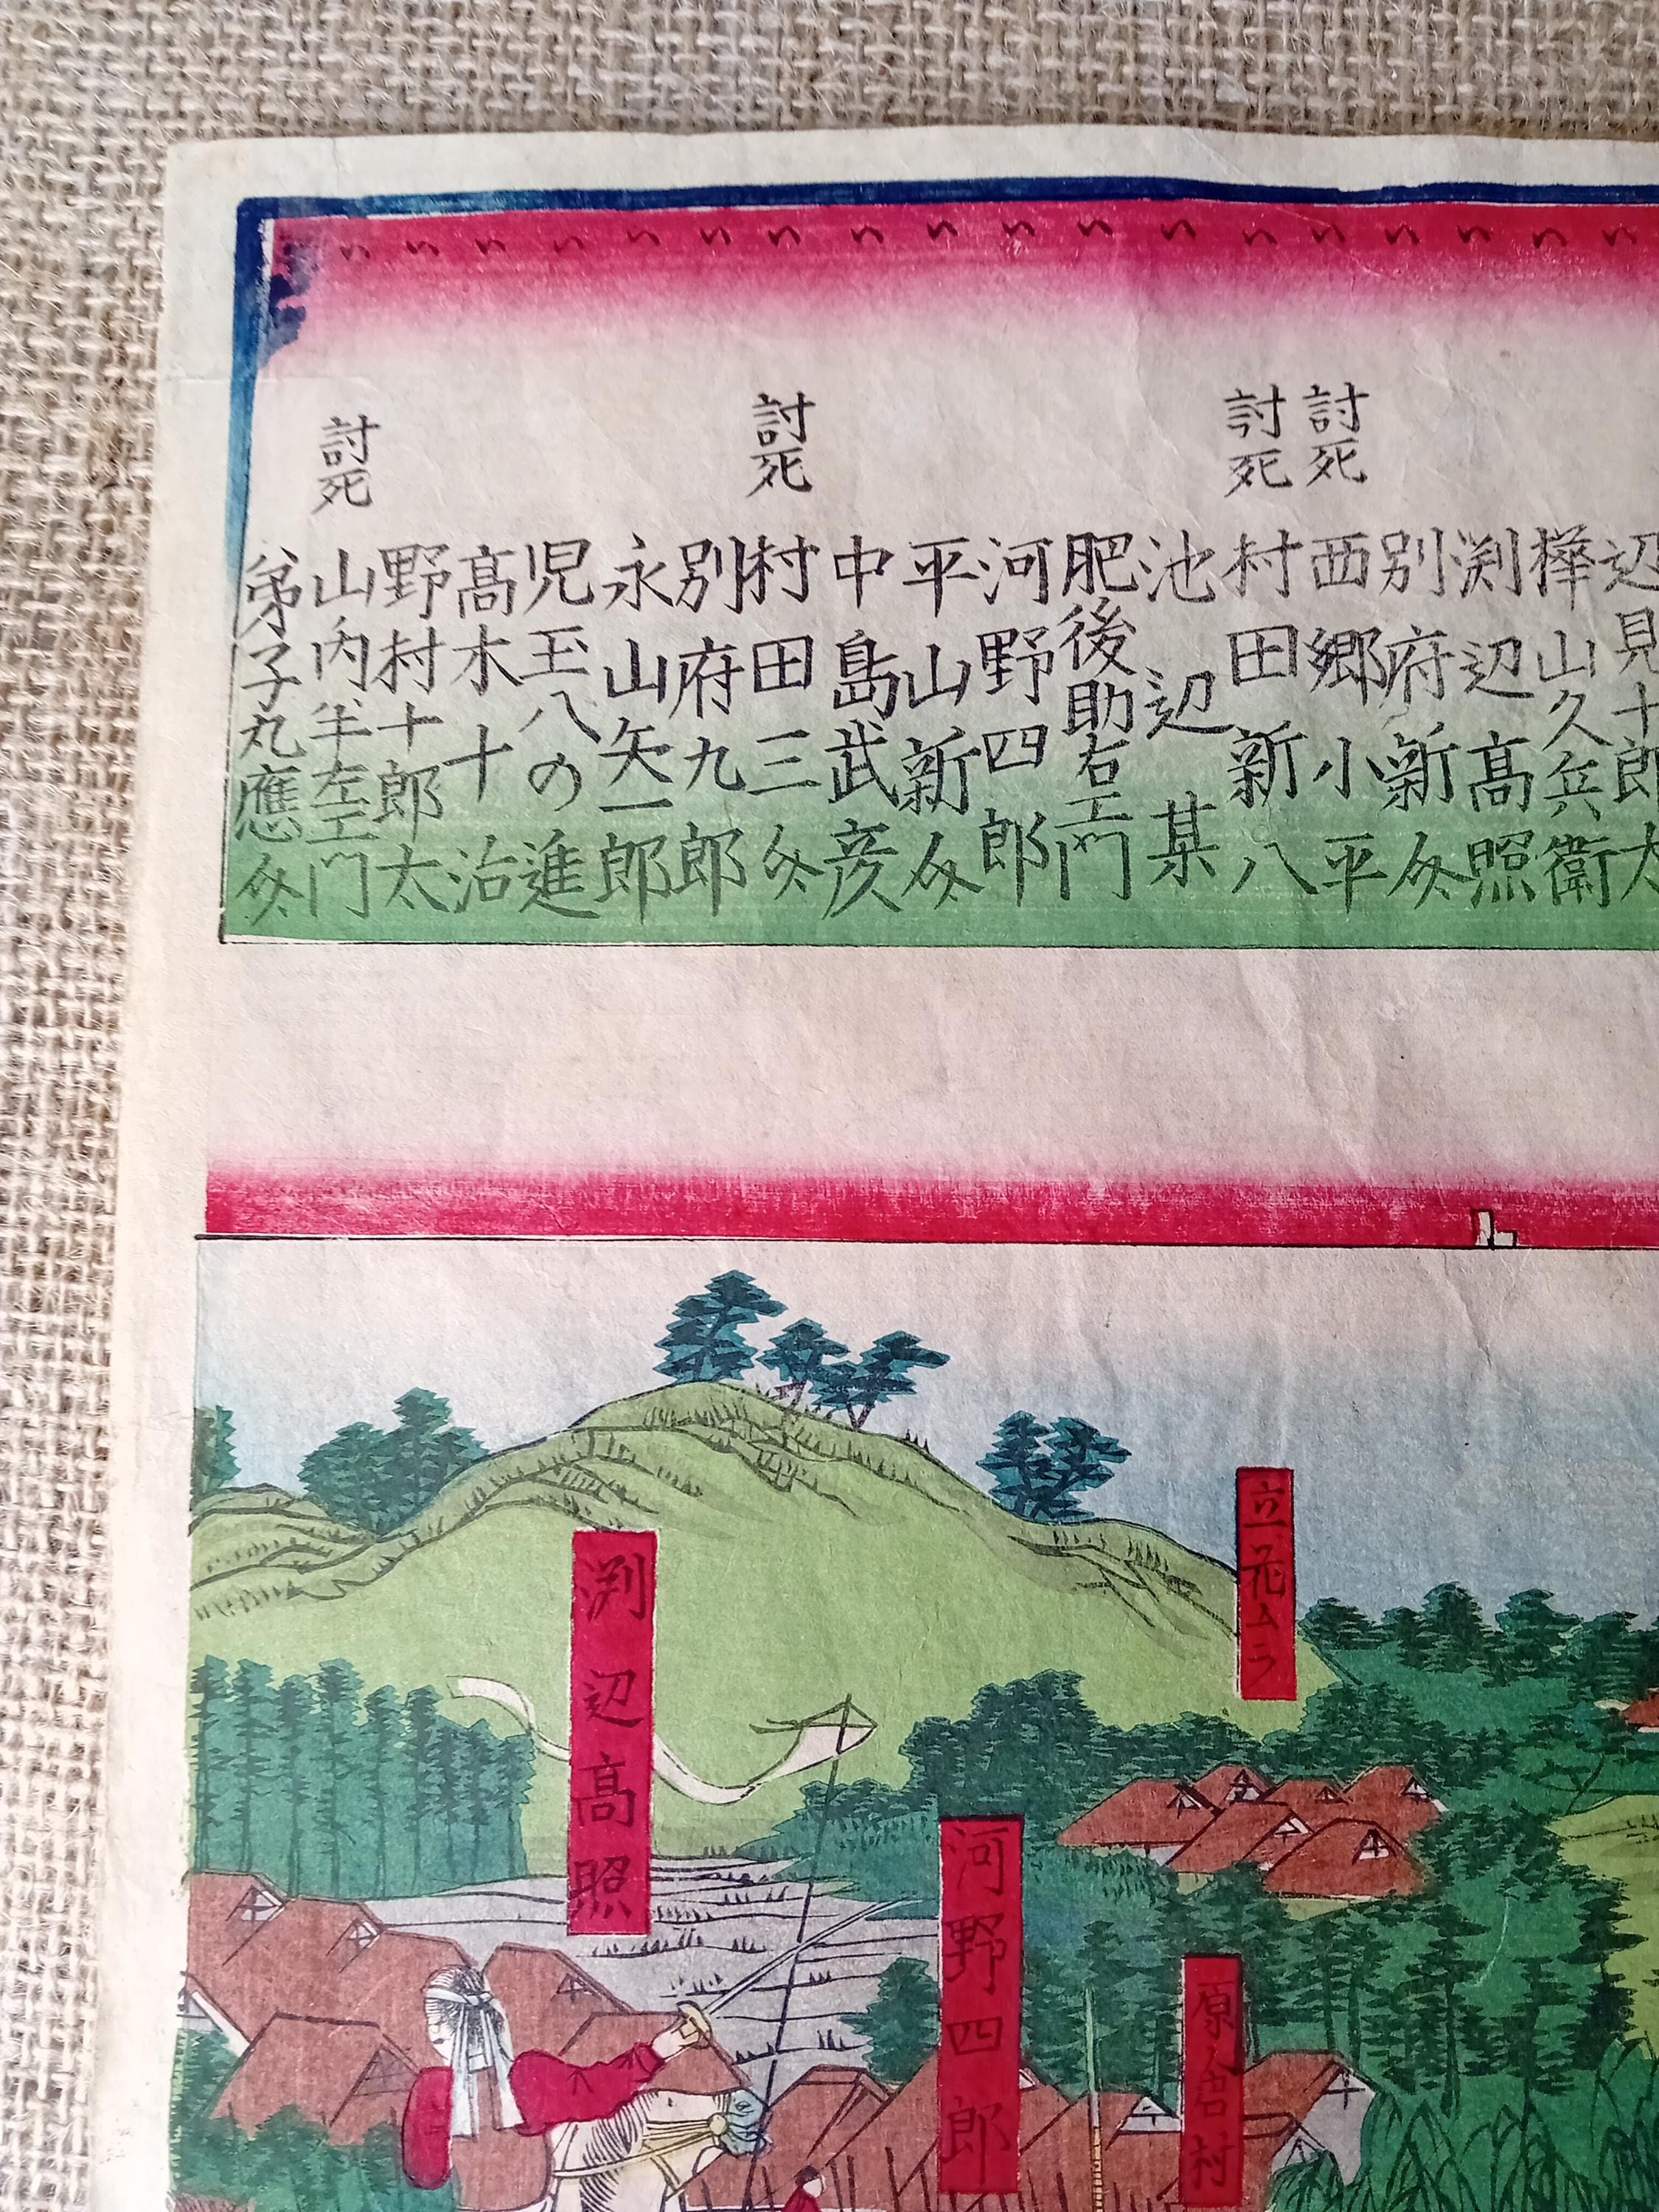 辺見十郎太
樺山久兵衛
渕辺髙照
別府新介
討死 西郷小平
討死 村田新八
池辺某
肥後助右エ門
河野四郎
平山新介
中島武彦
討死 村田三介
別府九郎
永山矢一郎
児玉八の進
髙木十治
野村十郎太
討死 山内半左エ門
弟子丸應介
立花ムラ
河野四郎
渕辺髙照